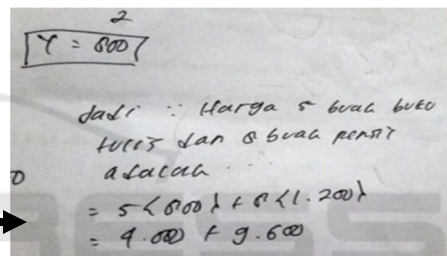 2
Y = 800
Jadi : Harga 5 buah buku
tulis dan 8 buah pensil
adalah
= 5(800) + 8(1.200)
= 4.000 + 9.600